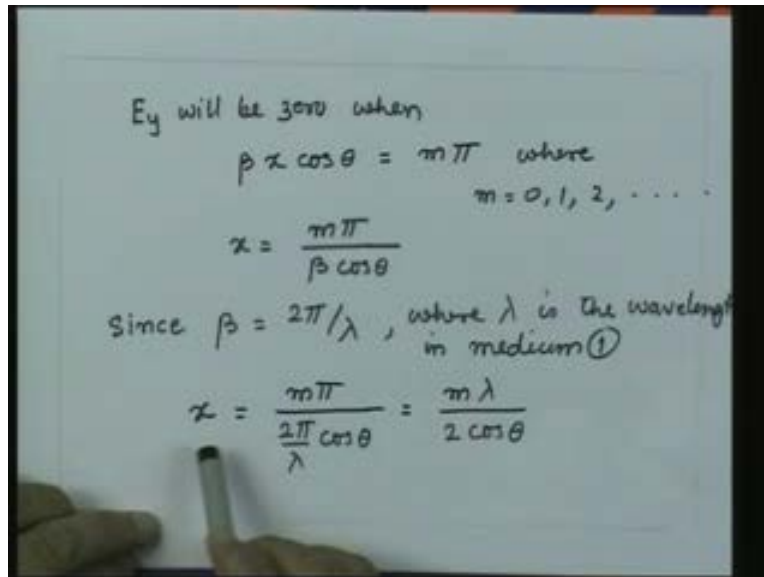 Ey will be zero when
β x cos θ = mπ where
m = 0, 1, 2, ....
x = mπ / β cos θ
Since β = 2π/λ, where λ is the wavelength
in medium ①
x = mπ / (2π/λ cos θ) = mλ / 2 cos θ